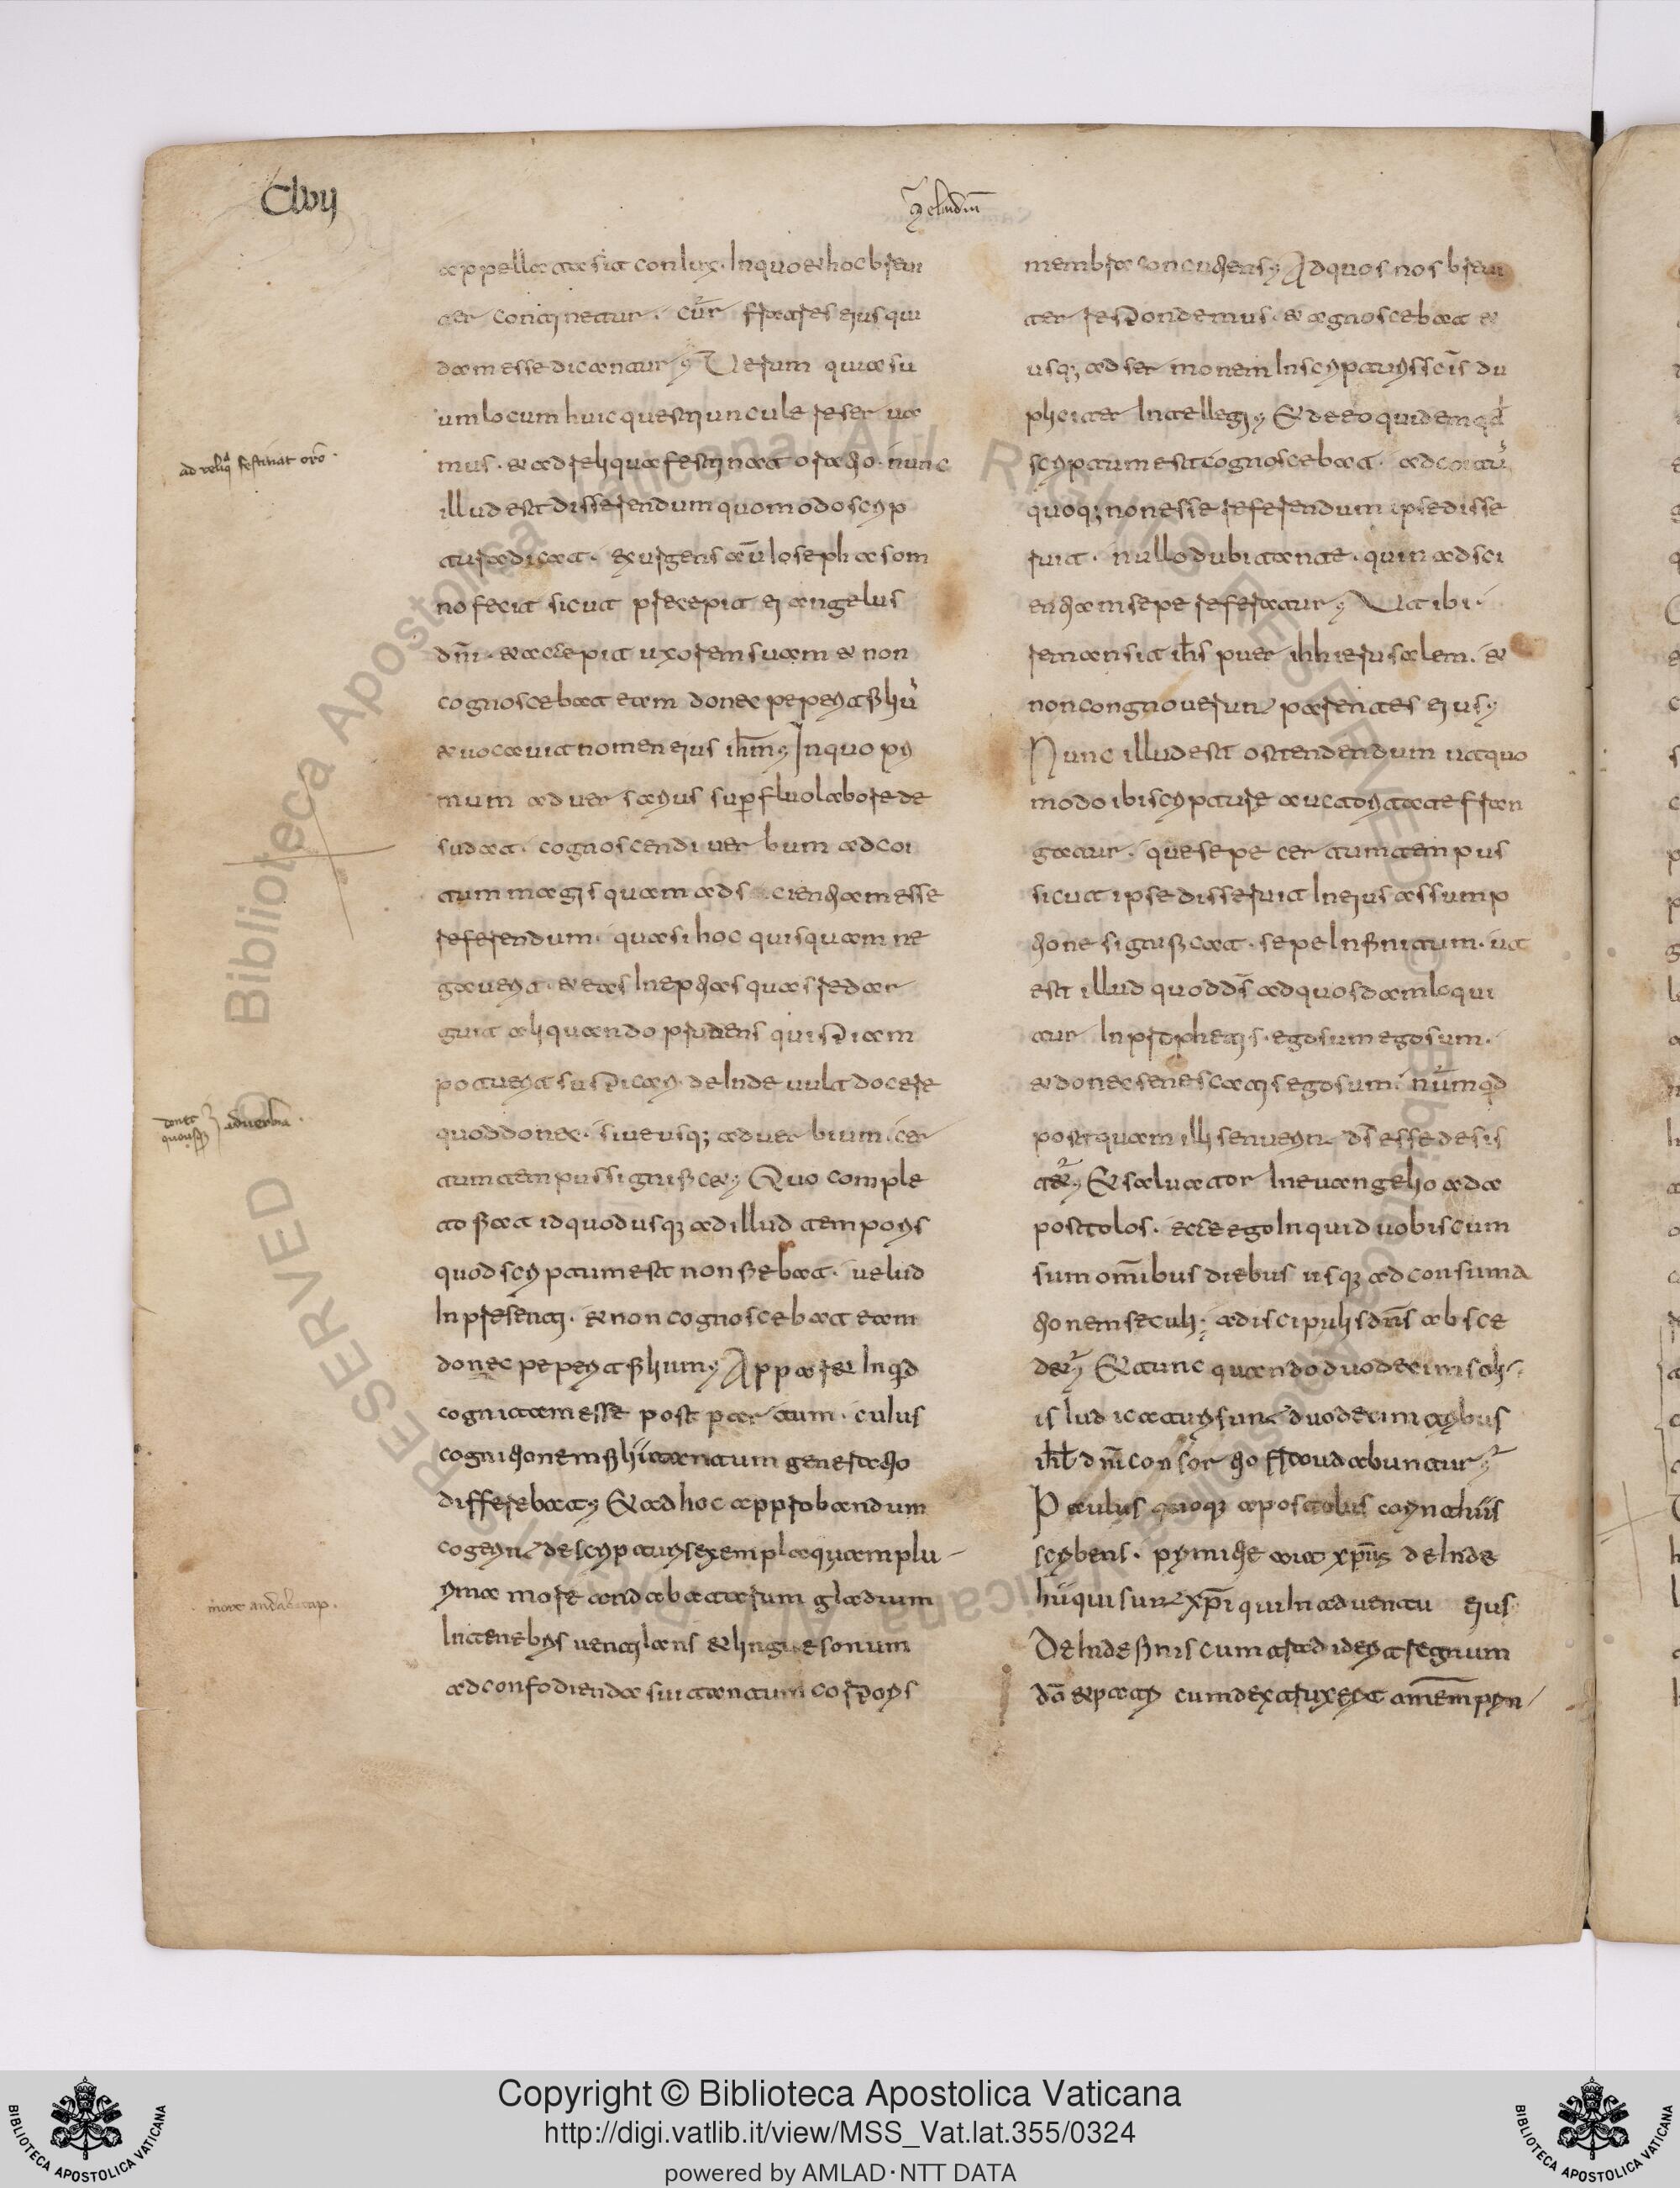 Clvii
ꝯ elnidiū
appellata sit coniux. In quo & hoc brevi
ter continetur. cur fratres eius qui
dam esse dicantur; Verum quia su
um locum huic questiuncule reserva
mus. & ad reliqua festinat oratio. nunc
illud est disserendum quomodo scrip
tura dicat. exurgens aū ioseph a som
no fecit sicut precepit ei angelus
dn̄i. & accepit uxorem suam & non
cognoscebat eam donec peperit filiū
& vocavit nomen eius ih̄m; In quo pri
mum adversarius sup̄fluo labore de
sudat. cognoscendi verbum ad coi
tum magis quam ad scientiam esse
referendum. quasi hoc quisquam ne
gaverit. & eas ineptias quas redar
guit aliquando prudens quispiam
potuerit suspicari. deinde vult docere
quod donec. sive usq; adverbium. cer
tum tempus significet; Quo comple
to fiat id quod usq; ad illud temporis
quod scriptum est non fiebat. velud
in presenti. & non cognoscebat eam
donec peperit filium; Apparet inq̄d
cognitam esse post partum. cuius
cognitionem filii tantum generatio
differebat; & ad hoc approbandum
congerit de scripturis exempla quam plu
rima more andabatarum gladium
in tenebris ventilans & lingue sonum
ad confodienda sui tantum corporis
membra concutiens; Ad quos nos brevi
ter respondemus. & agnoscebat &
usq; ad sermonem in scripturis scīs du
pliciter intellegi; & de eo quidem qd̄
scriptum est cognoscebat. ad coitū
quoq; non esse referendum ipse disse
ruit. nullo dubitante. quin ad sci
entiam sepe referatur; Ut ibi.
remansit ih̄s puer in hierusalem. &
non congnoverunt parentes eius;
Nunc illud est ostendendum ut quo
modo ibi scripture auctoritate fran
gatur. que sepe certum tempus
sicut ipse disseruit in eius assump
tione significat. sepe infinitum. ut
est illud quod ds̄ ad quosdam loqui
tur in prophetis. ego sum ego sum.
& donec senescatis ego sum. numq̄d
postquam illi senuerint ds̄ esse desis
tet; & salvator in evangelio ad a
postolos. ecce ego inquid vobiscum
sum omībus diebus usq; ad consuma
tionem seculi. a discipulis dn̄s absce
det; & tunc quando duodecim soli
is iudicaturi sunt duodecim tribus
ih̄l dn̄i consortio fraudabuntur;
Paulus quoq; apostolus corinthiis
scribens. primitie ait xp̄us deinde
hii qui sunt xp̄i qui in adventu eius
Deinde finis cum tradiderit regnum
dō & patri cum dextruxerit omēm prin
ad reliqua festinat orō.
donec
quousq;
adverbia.
more andabatarum.
Copyright © Biblioteca Apostolica Vaticana
http://digi.vatlib.it/view/MSS_Vat.lat.355/0324
powered by AMLAD·NTT DATA
BIBLIOTECA APOSTOLICA VATICANA
BIBLIOTECA APOSTOLICA VATICANA